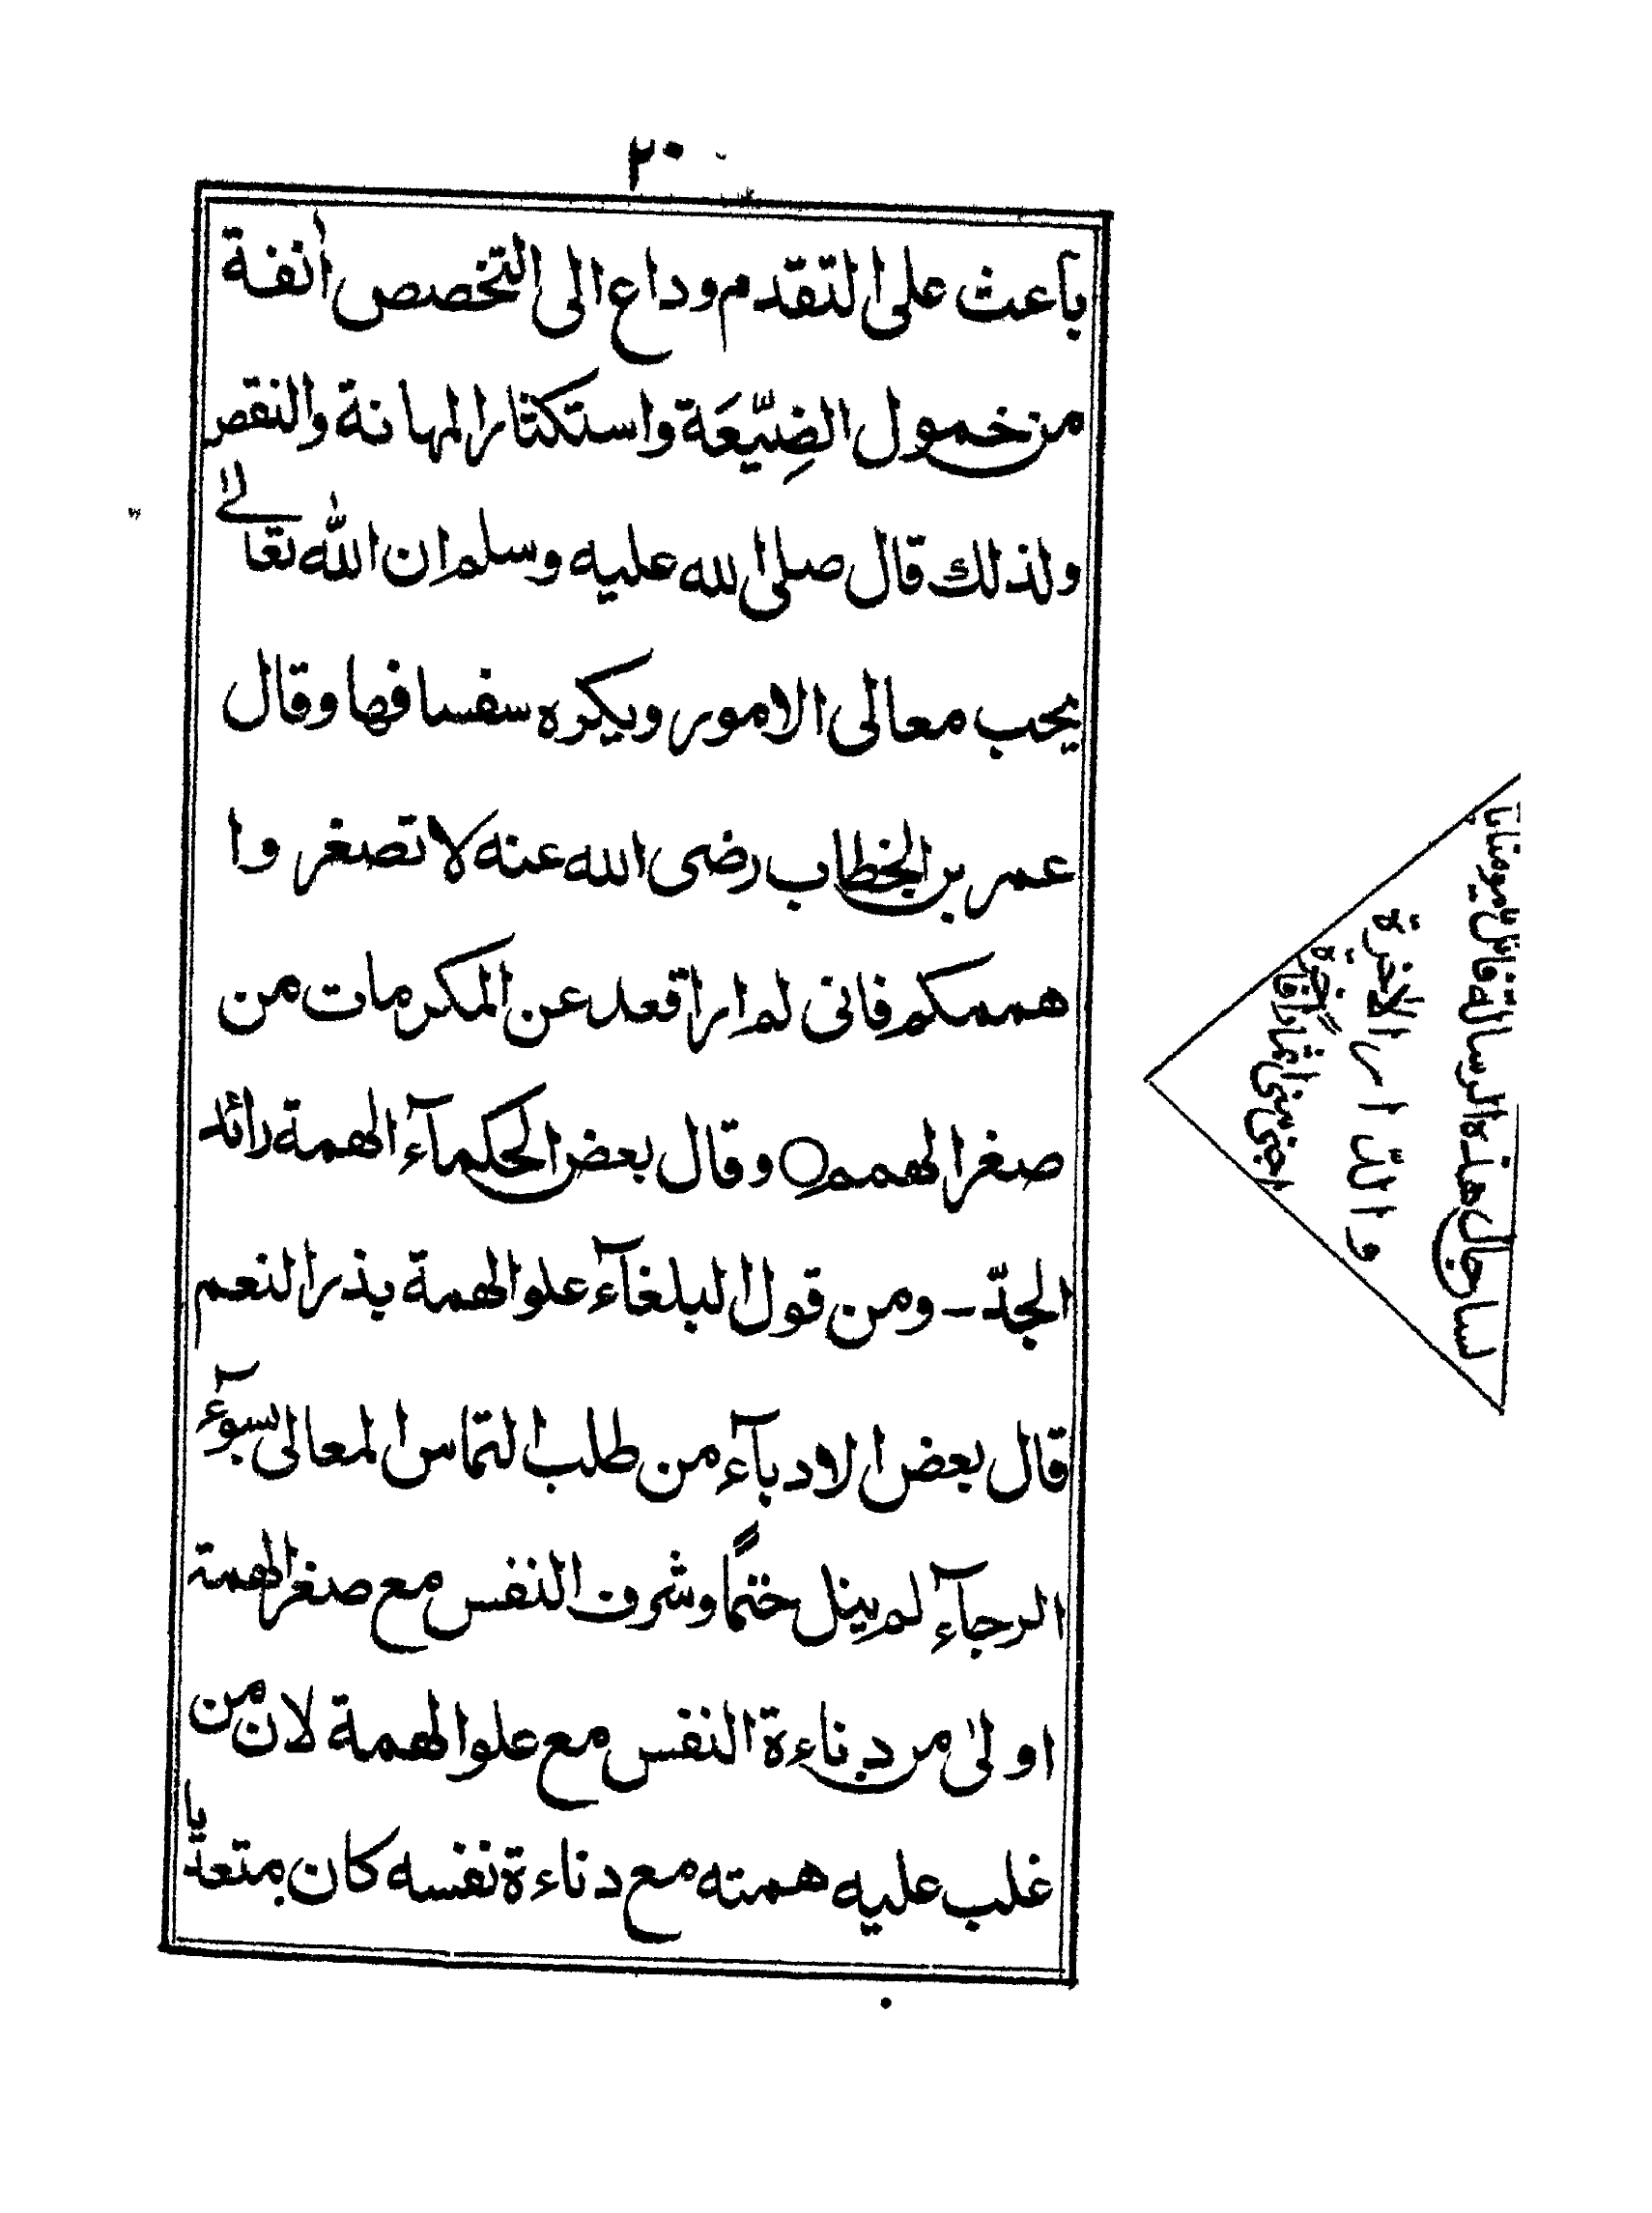 ٢٠
باعث على التقدم وداع الى التخصص أنفة
من خمول الضِيّعَة واستكثار المهانة والنقص
ولذلك قال صلى الله عليه وسلم ان الله تعالىٰ
يحب معالى الامور ويكره سفسافها وقال
عمر بن الخطاب رضى الله عنه لا تصغروا
هممكم فانى لم ار اقعد عن المكرمات من
صغر الهمم ○ وقال بعض الحكمآء الهمة رائد
الجدّ - ومن قول البلغآء علو الهمة بذر النعم
قال بعض الادبآء من طلب التماس المعالى بسوٓء
الرجآء لم ينل ختمًا وشرف النفس مع صغر الهمة
اولىٰ من دناءة النفس مع علو الهمة لان من
غلب عليه همته مع دناءة نفسه كان متعدّيا
لسا جال هذه الرسالة قائل
و اللّه ا ر الآخرة